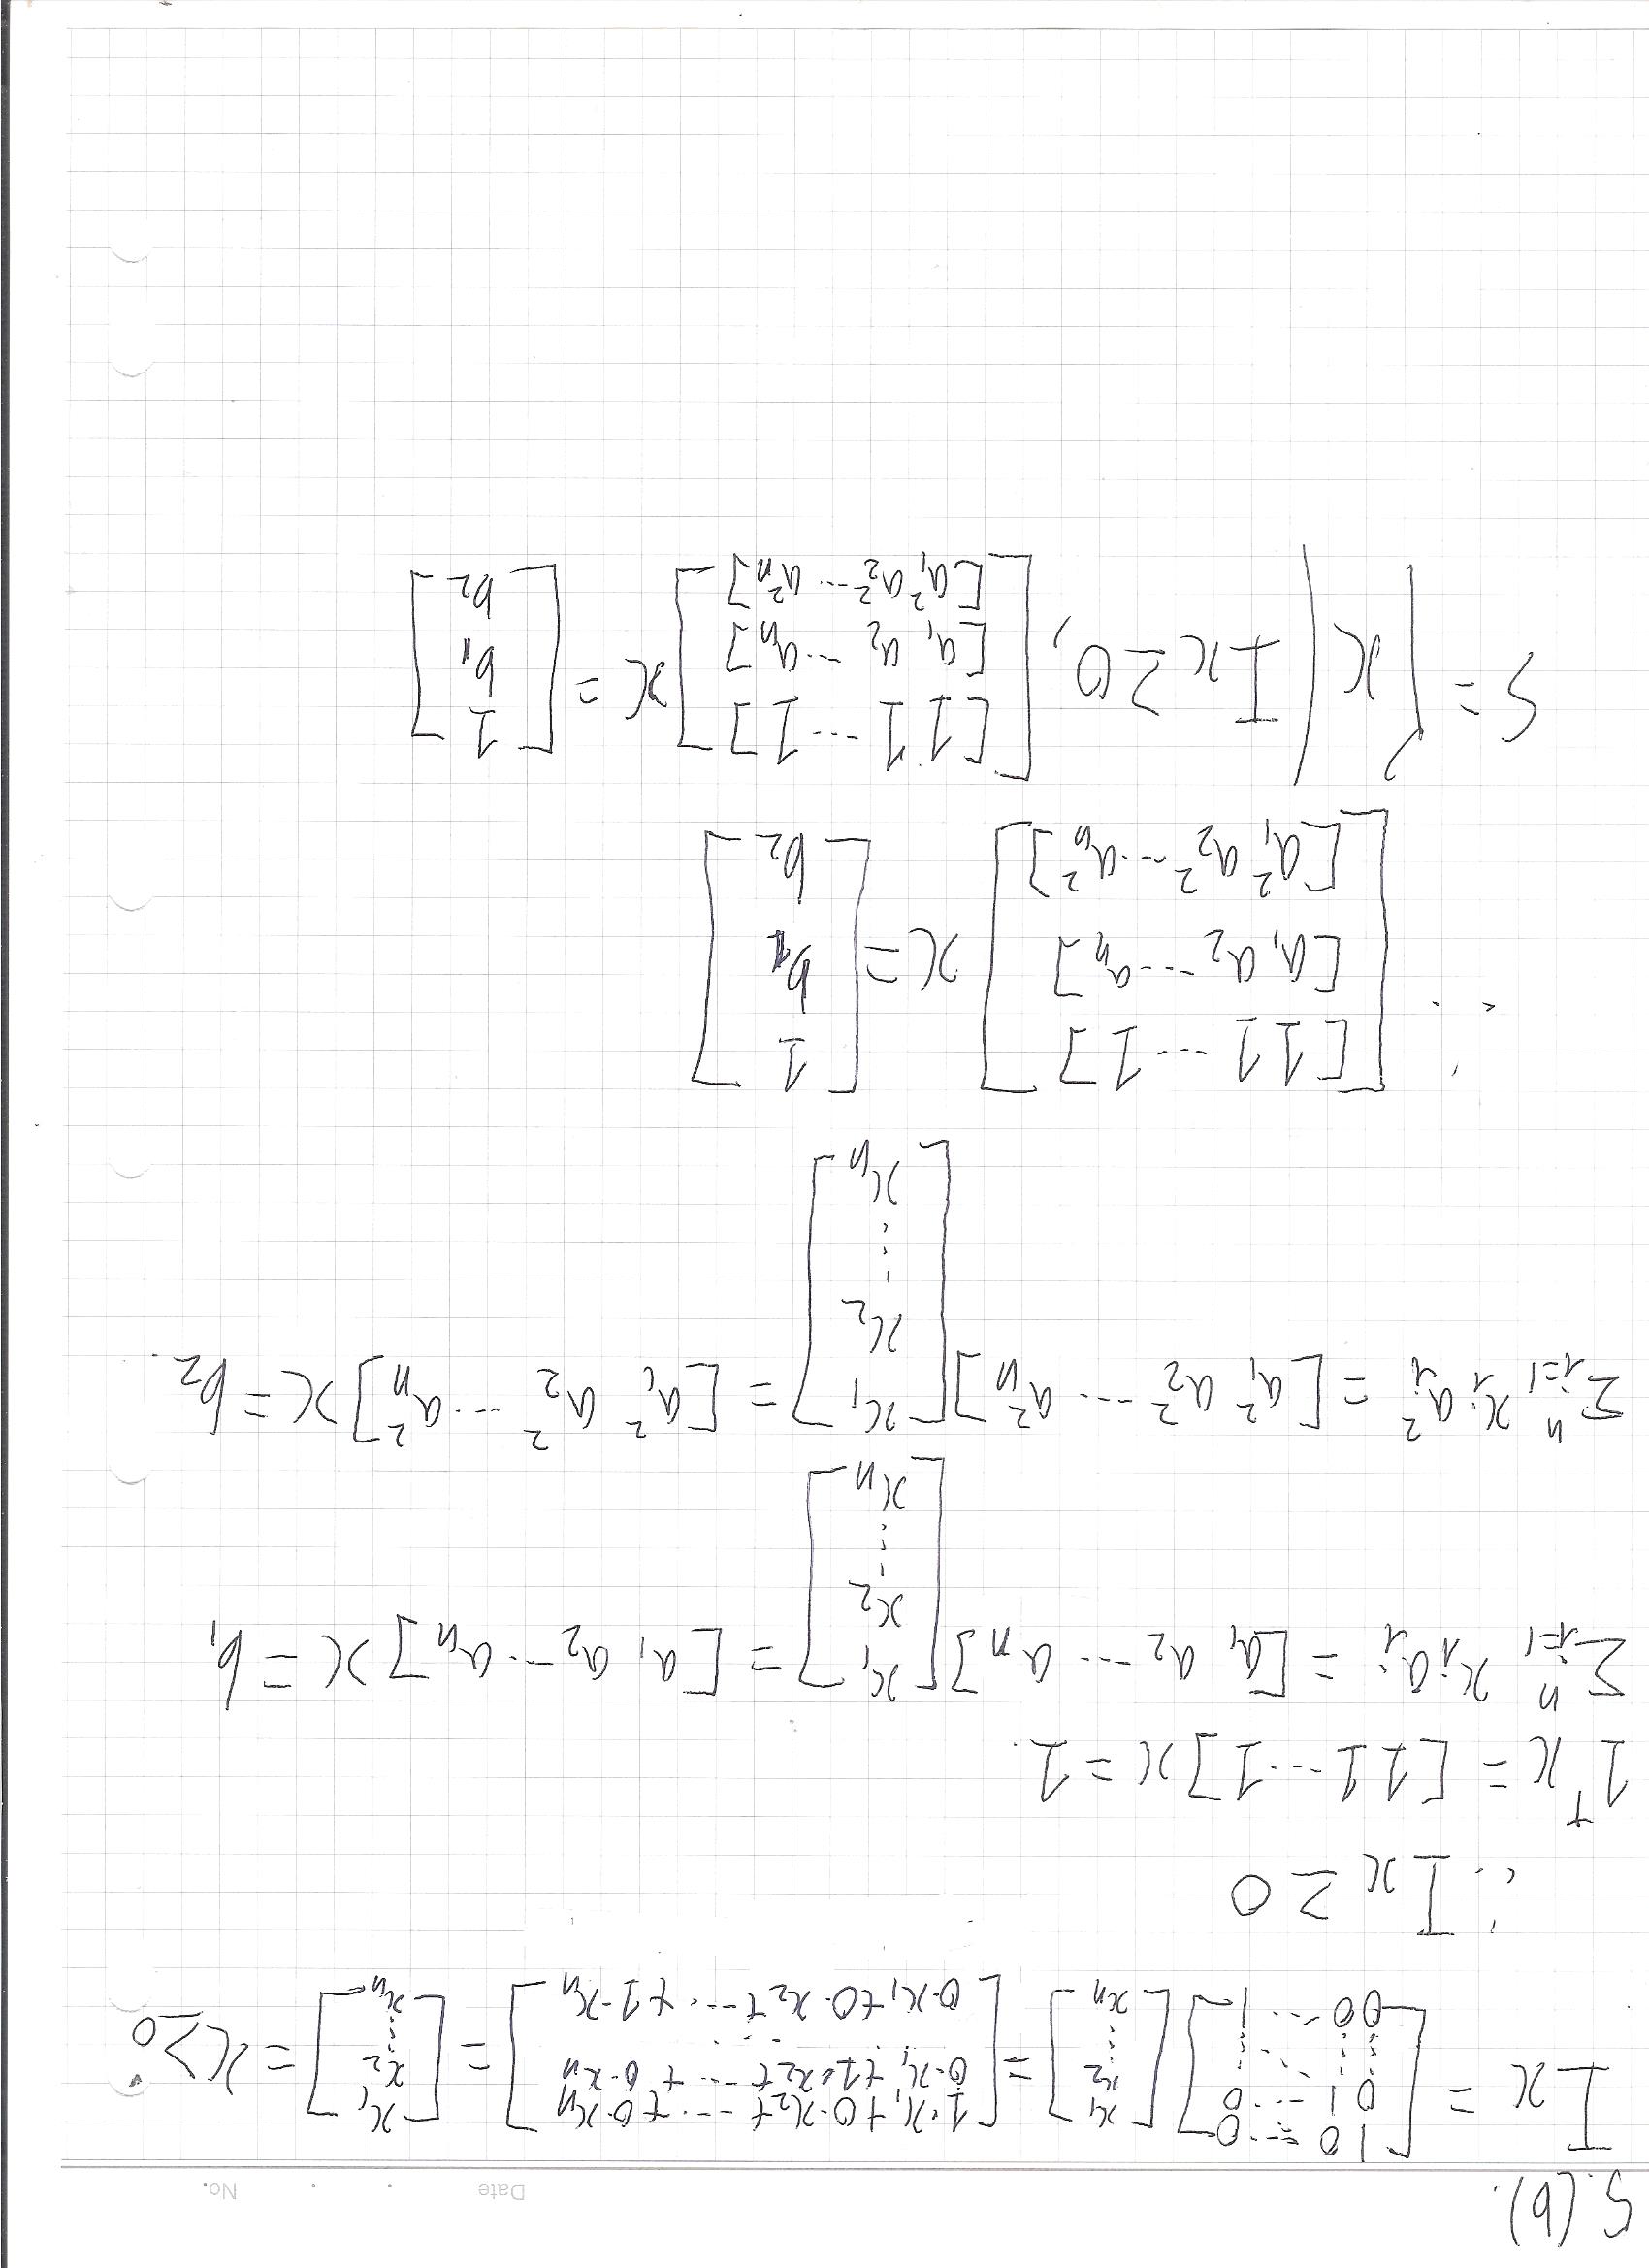 5.(b).
Date . . No.
Ix = [1 0 ⋯ 0; 0 1 ⋯ 0; ⋮ ⋮ ⋱ ⋮; 0 0 ⋯ 1] [x₁; x₂; ⋮; xₙ] = [1·x₁+0·x₂+⋯+0·xₙ; 0·x₁+1·x₂+⋯+0·xₙ; ⋯ ⋯; 0·x₁+0·x₂+⋯+1·xₙ] = [x₁; x₂; ⋮; xₙ] = x≥0
∴ Ix ≥ 0
1ᵀx = [1 1 ⋯ 1]x = 1.
Σⁿᵢ₌₁ xᵢaᵢ = [a₁ a₂ ⋯ aₙ][x₁; x₂; ⋮; xₙ] = [a₁ a₂ ⋯ aₙ]x = b₁
Σⁿᵢ₌₁ xᵢaᵢ² = [a₁² a₂² ⋯ aₙ²][x₁; x₂; ⋮; xₙ] = [a₁² a₂² ⋯ aₙ²]x = b₂.
∴ [[1 1 ⋯ 1]; [a₁ a₂ ⋯ aₙ]; [a₁² a₂² ⋯ aₙ²]] x = [1; b₁; b₂]
S = {x | Ix ≥ 0, [[1 1 ⋯ 1]; [a₁ a₂ ⋯ aₙ]; [a₁² a₂² ⋯ aₙ²]] x = [1; b₁; b₂]